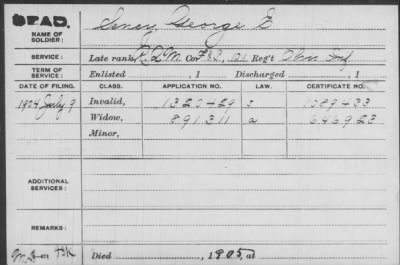 DEAD.
NAME OF SOLDIER: George E
SERVICE: Late rank R.Q.M. Co. F&S, 121 Reg't Ohio Inf
TERM OF SERVICE: Enlisted , 1 Discharged , 1
DATE OF FILING. CLASS. APPLICATION NO. LAW. CERTIFICATE NO.
1904 July 9 Invalid, 1320429 1089433
Widow, 891311 a 646923
Minor,
ADDITIONAL SERVICES:
REMARKS:
Died , 1905, at